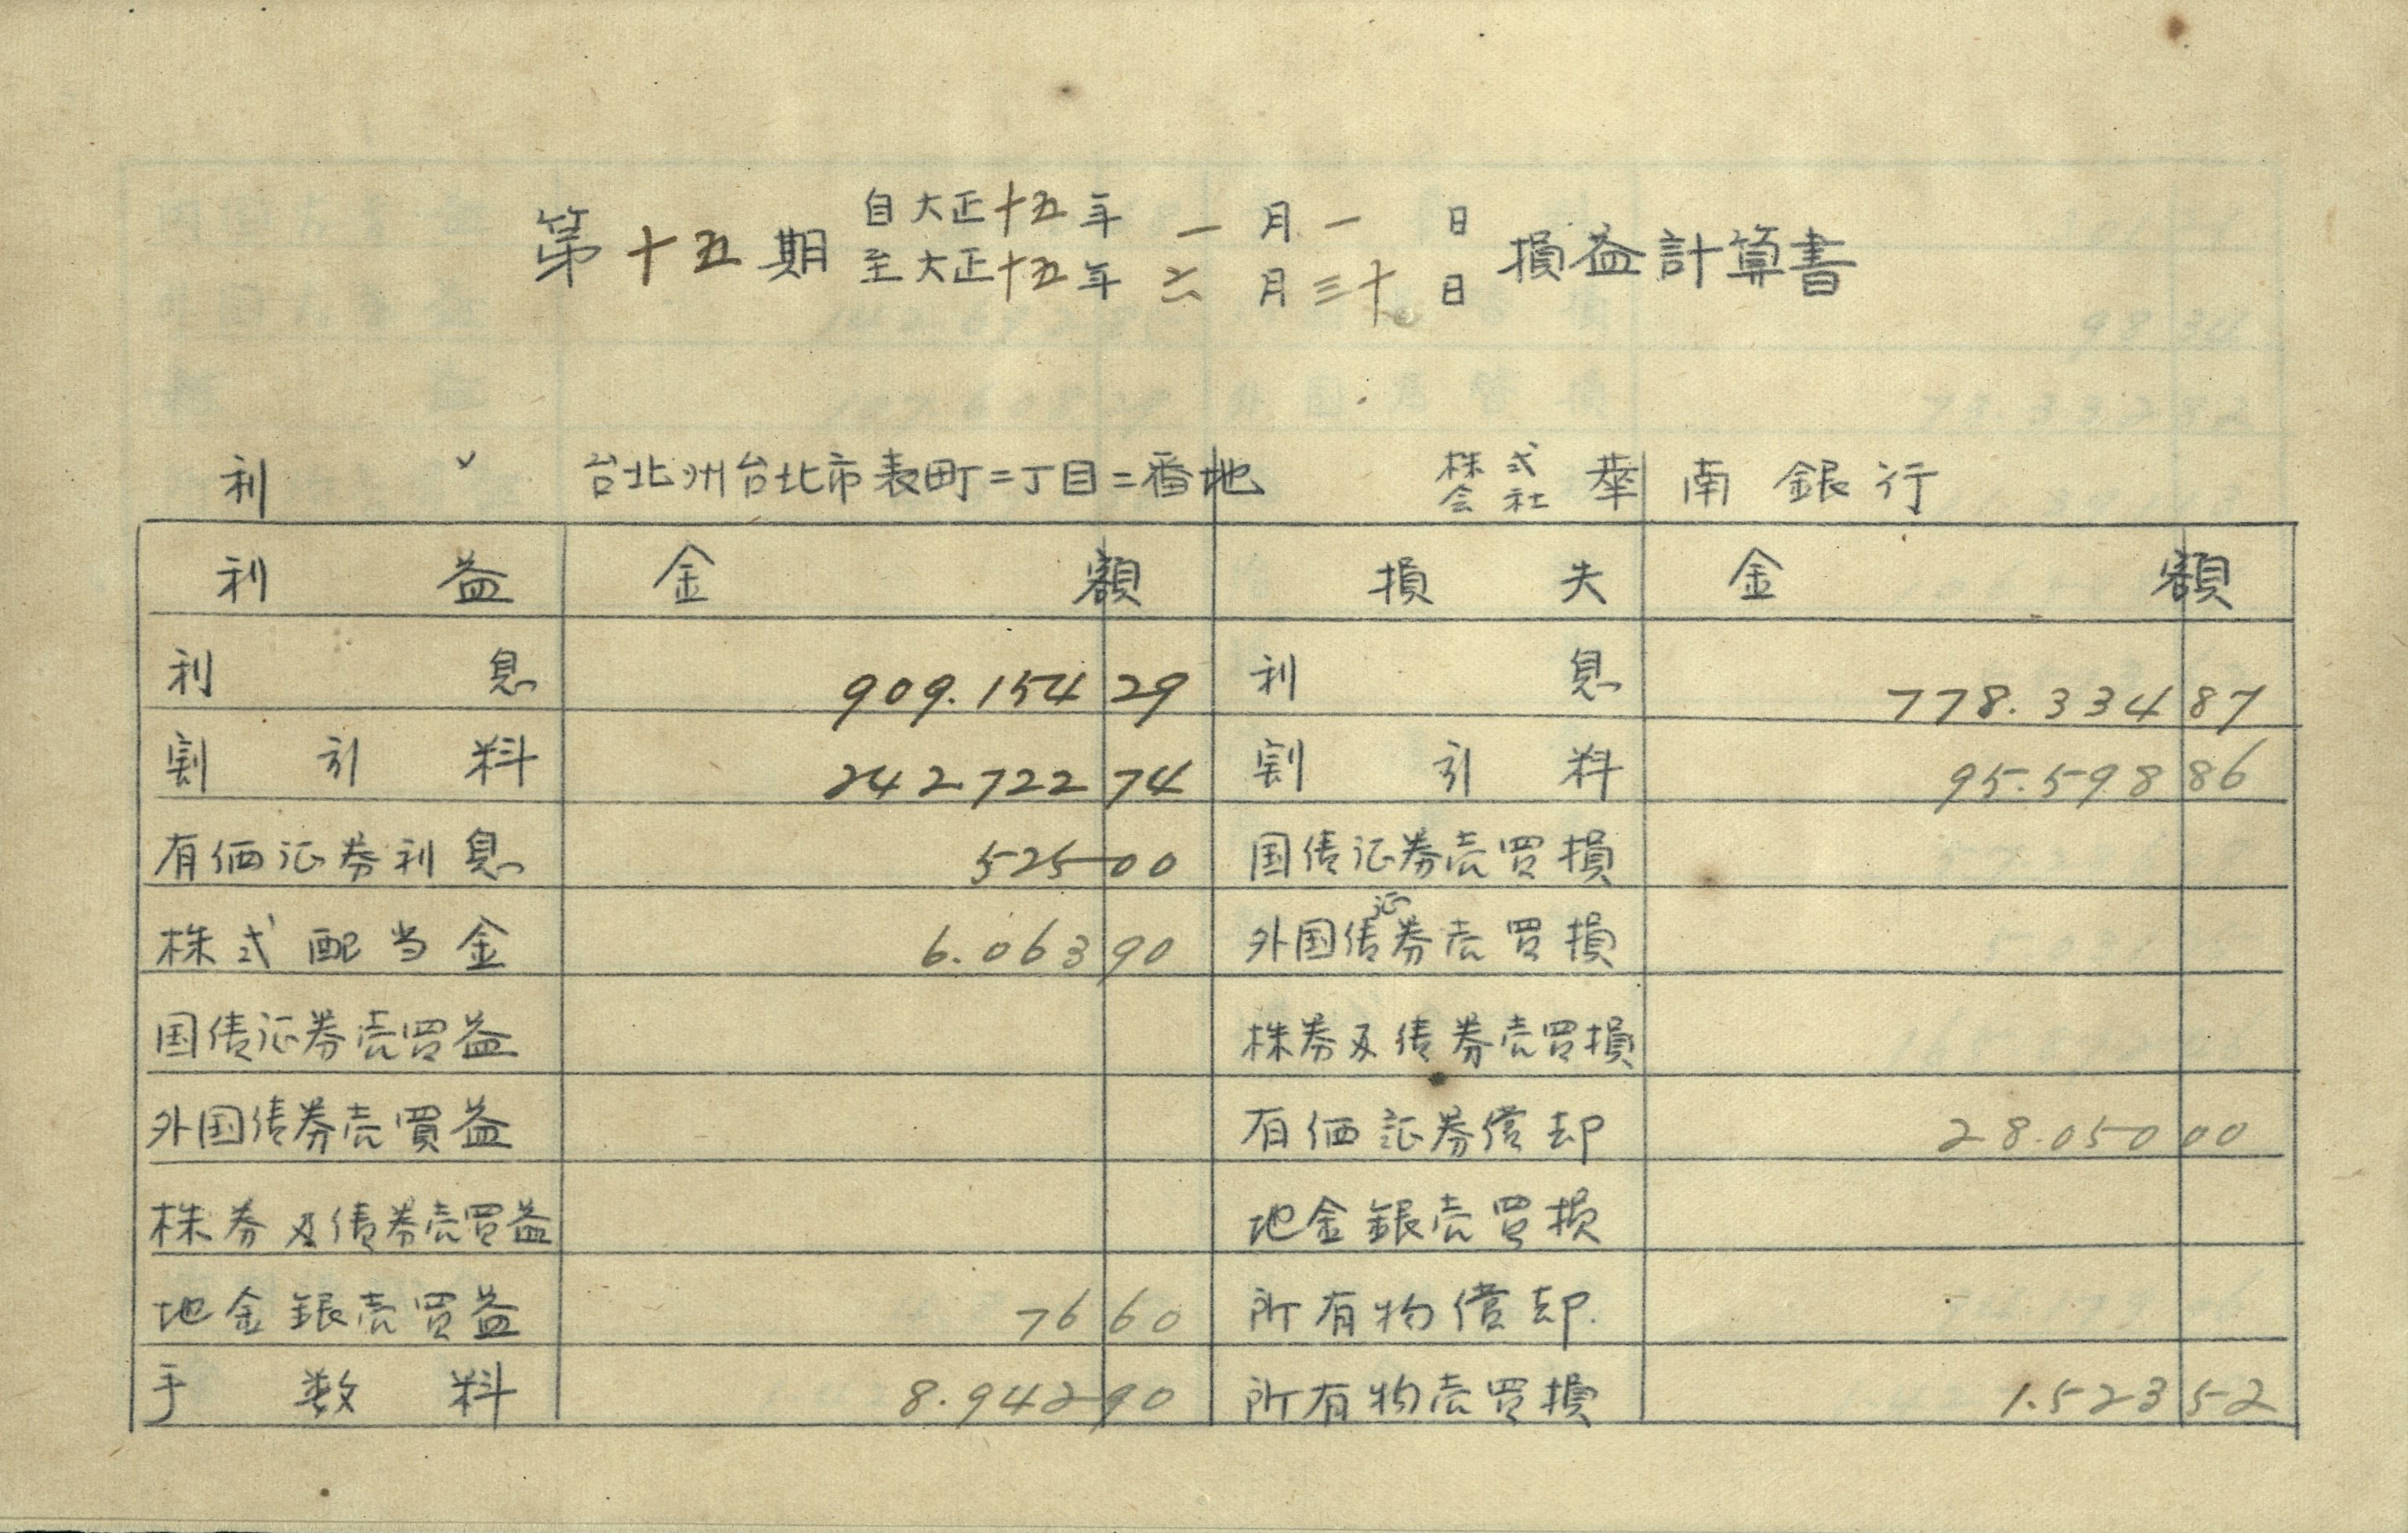 第十五期 自大正十五年一月一日 至大正十五年六月三十日 損益計算書
利 台北州台北市表町二丁目二番地 株式会社 華南銀行
利益 金額 損失 金額
利息 909.154 29 利息 778.334 87
割引料 242722 74 割引料 95.598 86
有価証券利息 525 00 国債証券売買損
株式配当金 6.063 90 外国債証券売買損
国債証券売買益 株券及債券売買損
外国債券売買益 有価証券償却 28.050 00
株券及債券売買益 地金銀売買損
地金銀売買益 76 60 所有物償却.
手数料 8.942 90 所有物売買損 1.523 52